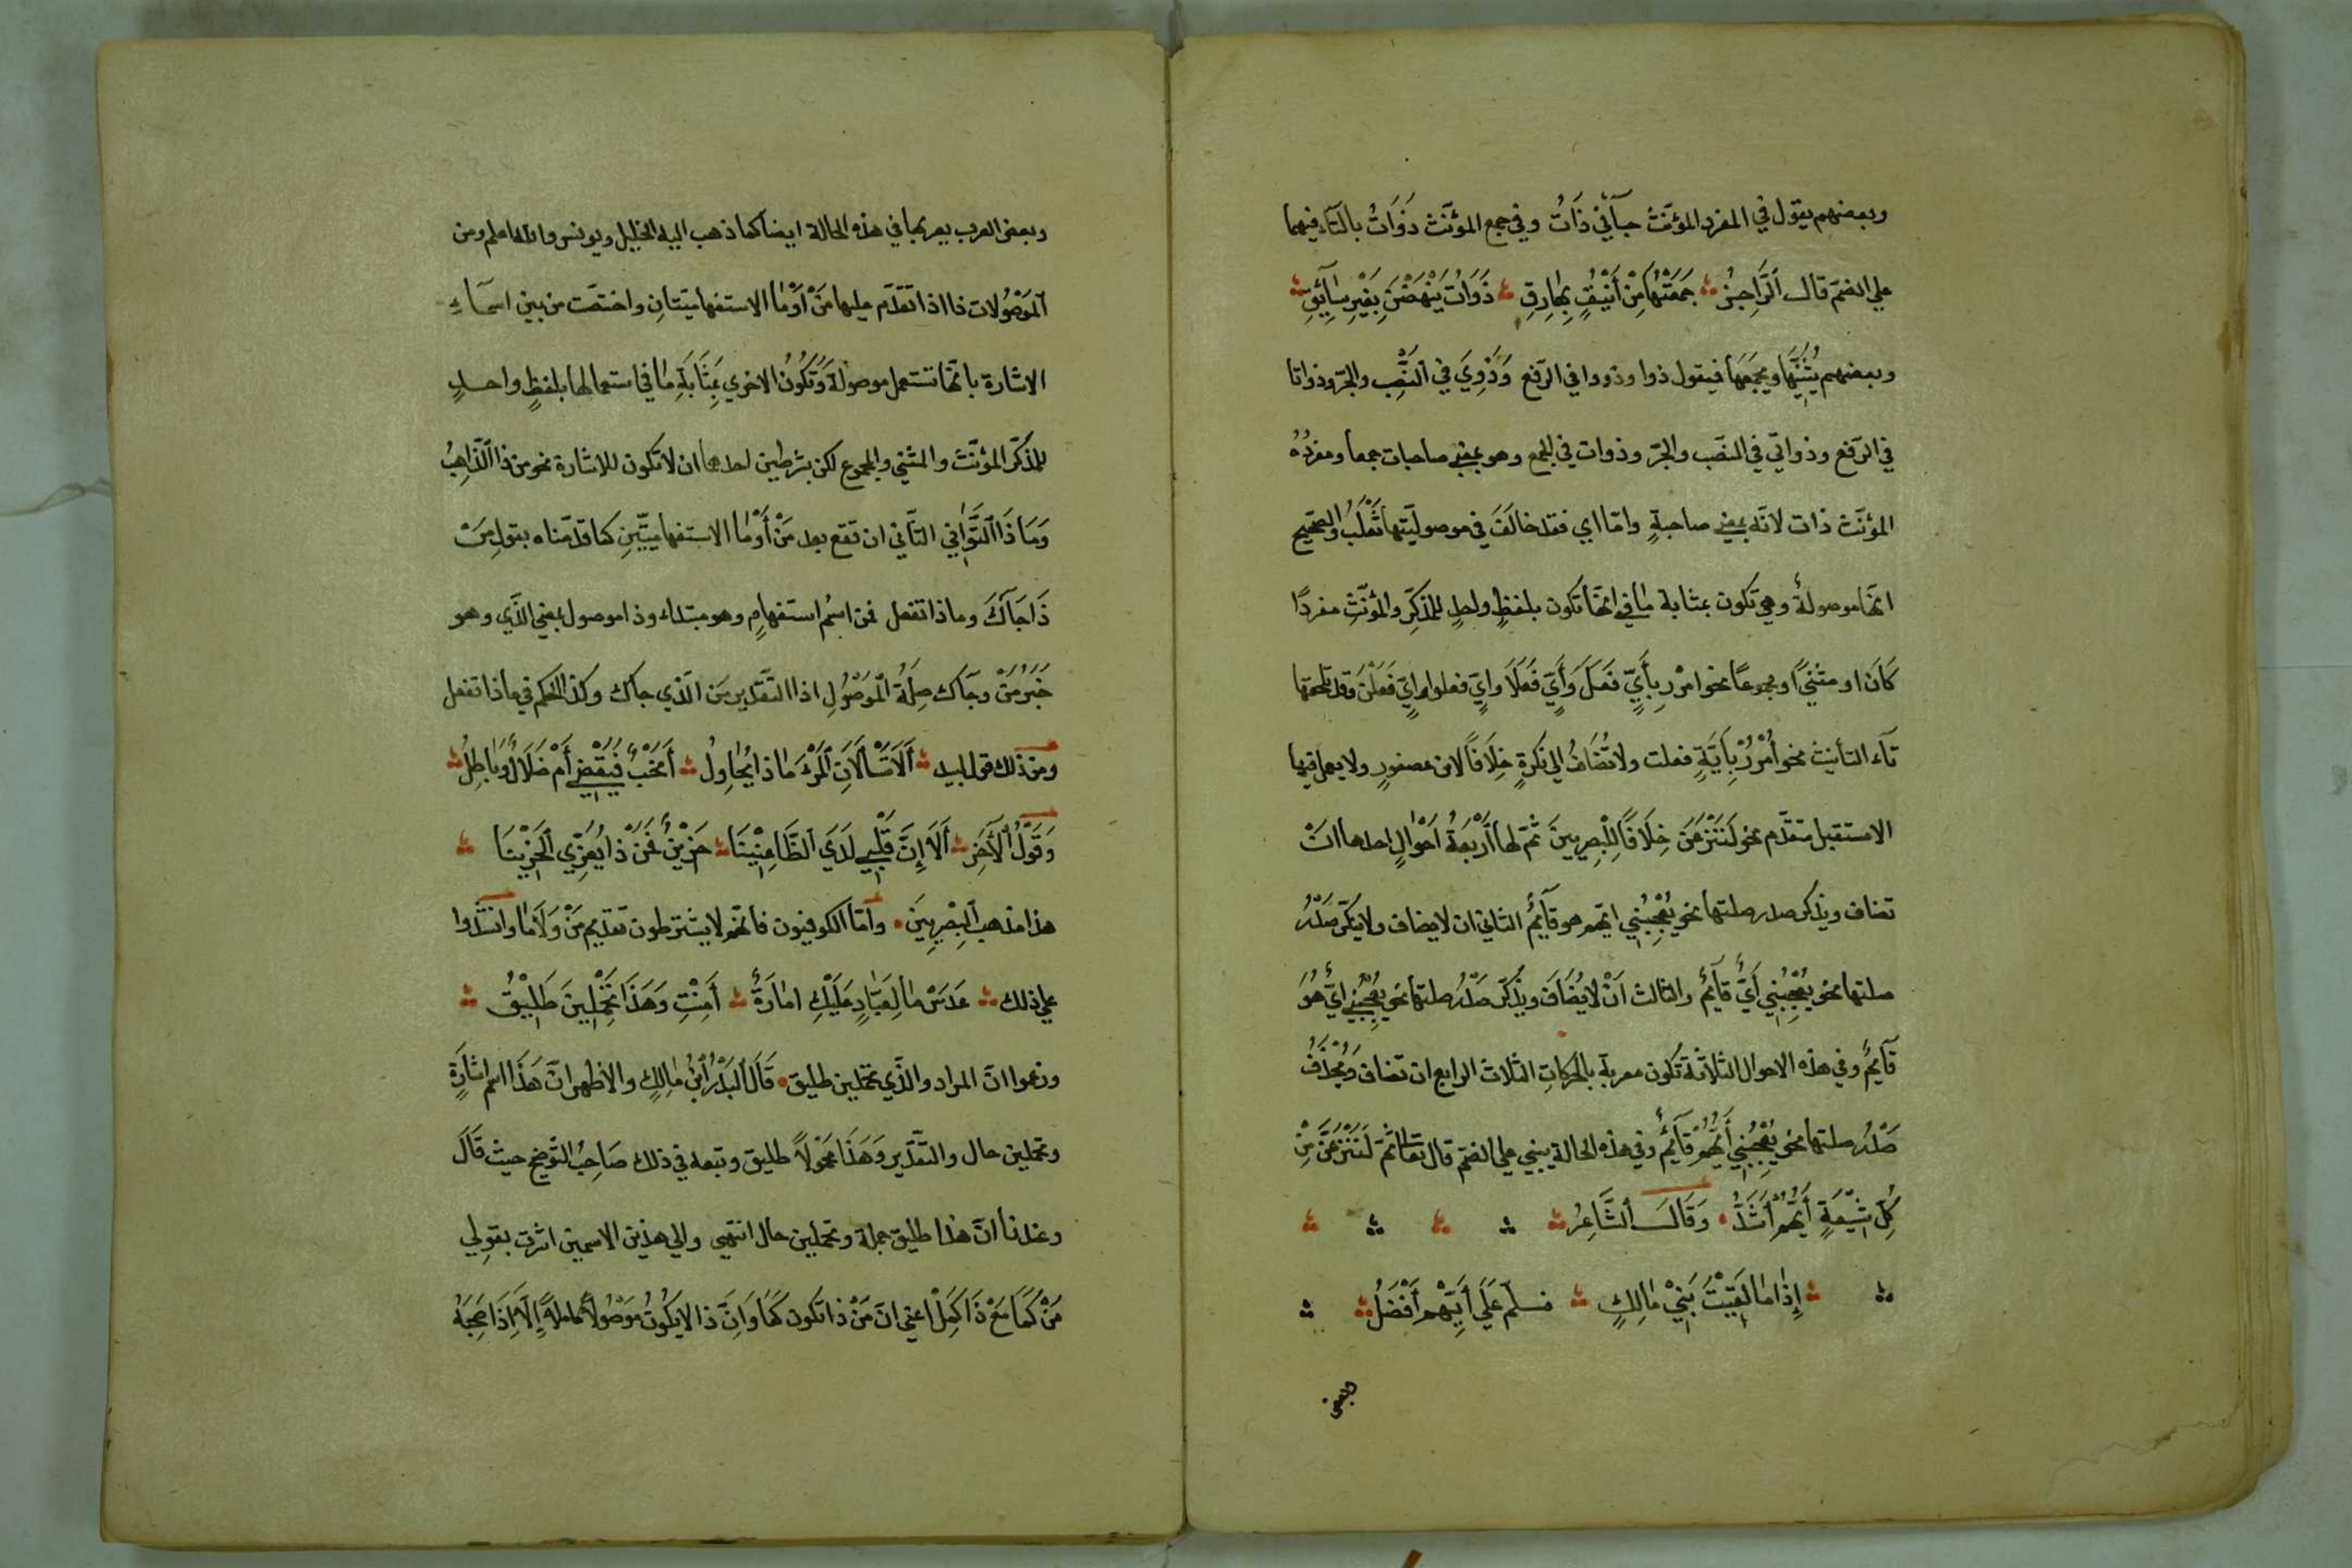 وبعضهم يقول في المفرد المؤنّث جآئني ذَاتُ وفي جمع المؤنّث ذَوَاتُ بالتآء فيهما
علي الضمّ قال الرَّاجِزُ جَمَعْتُهَا مِنْ أَيْنُقٍ مَوَارِقِ ذَوَاتُ يَنْهَضْنَ بِغَيْرِ سَآئِقِ
وبعضهم يُثَنِّيهَا ويجمَعُهَا فيقول ذوا وذووا في الرّفع وَذَوِيَ في النَّصْبِ والجرّ وذواتا
في الرّفع وذواتي في النصب والجرّ وذوات في الجمع وهو بمعني صاحبات جمعا ومفردُهُ
المؤنّث ذات لانّه بمعني صاحبةٍ وامّا اي فقد خالَفَ في موصوليّتها ثَعْلَبُ والصّحيح
انّها موصولةٌ وهي تكون بمثابة ما في انّها تكون بلفظٍ واحدٍ للمذكّرِ والمؤنّثِ مفردًا
كَانَ او مثنيً او مجموعًا نحو امْرُر بِأَيٍّ فَعَلَ وَأَيٍّ فَعَلَا وايٍّ فعلوا وايٍّ فَعَلْنَ وقد تلحقها
تآء التأنيث نحو اُمْرُرْ بِاَيَّةٍ فعلت ولا تُضَافُ الي نكرةٍ خِلَافًا لابن عصفورٍ ولا يعمل فيها
الا مستقبل متقدّم نحو لَنَنْزِعَنَّ خِلَافًا لِلْبِصرِيينَ ثمّ لها أَرْبَعَةُ اَحْوَالٍ احدها انْ
تضاف ويذكر صدر صلتها نحو يُعْجِبُنِي ايّهم هو قآئِمٌ الثاني ان لا يضاف ولا يذكر صَدْرُ
صلتها نحو يُعْجِبُنِي أَيٌّ قآئِمٌ والثالث اَنْ لا يُضَافَ ويذْكَر صَدْرُ صلتها نحو يُعْجِبُنِي ايٌّ هُوَ
قآئِمٌ وفي هذه الاحوال الثلاثة تكون معربة بالحركاتِ الثلاث الرابع ان تضاف وَيُحْذَفُ
صَدْرُ صلتها نحو يُعْجِبُنِي أَيُّهُمْ قَآئِمٌ وفي هذه الحالة يبني علي الضمّ قال تعالي ثمّ لَنَنْزِعَنَّ مِنْ
كُلِّ شِيعَةٍ أَيُّهُمْ أَشَدُّ وَقَالَ الشَّاعِرُ
إِذَا مَا لَقِيْتَ بَنِيْ مَالِكٍ فسلّم عَلَي أَيُّهُمْ أَفْضَلُ
وبعض
وبعض العرب يعربها في هذه الحالة ايضا كما ذهب اليه الخليل ويونس والله اعلم ومن
الْمَوْصُولات ذا اذا تقدّم عليها مَنْ أَوْ مَا الاستفهاميّتانِ واختصّت من بين اسمآءِ
الاشارة بانّها تستعمل موصولة وَتَكُونُ الاخري بِمَثَابَةِ ما في استعمالها بلفظٍ واحدٍ
للمذكّر المؤنّث والمثني والمجموع لكن بشرطين احدهما ان لا تكون للاشارة نحو من ذا الذّاهِبُ
وَمَا ذَا التَّوَانِي الثّاني ان تقع بعد مَنْ أَوْ مَا الاستفهاميّتَيْنِ كما قدّمناه بقولِ مَنْ
ذَا جَآكَ وماذا تفعل فمن اسْم استفهامٍ وهو مبتداء وذا موصول بمعني الّذي وهو
خَبَرُ مَنْ وجآك صِلَةُ الْمَوْصُولِ اذا التّقدير مَن الّذي جاك وكذا الحكم في ماذا تفعل
ومن ذلك قول لبيد أَلَا تَسْأَلَانِ الْمَرْءَ مَاذا يُحَاوِلُ أَنَحْبٌ فَيُقْضَي أَمْ ضَلَالٌ وَبَاطِلُ
وَقَوْلُ الآخَرِ أَلَا إِنَّ قَلْبِي لَدَي الظَّاعِنِيْنَا حَزِيْنٌ فَمَنْ ذَا يُعَزِّي الْحَزِيْنَا
هذا مذهب الْبِصْرِيينَ وأمّا الكوفيون فانّهم لا يشترطون تقديم مَنْ وَلَا مَا وانشدوا
علي ذلك عَدَسْ مَا لِعَبَّادٍ عَلَيْكِ امَارَةٌ أَمِنْتِ وَهَذَا تَحْمِلِيْنَ طَلِيْقُ
وزعموا انّ المراد والّذي تحملين طليق قَالَ الْبَدْرُ ابْنُ مَالِكٍ والاظهر انّ هَذَا اسم اشَارَةٍ
وتحملين حال والتقدير وَهَذَا محمُولًا طليق وتبعه في ذلك صَاحِبُ التّوضيح حيث قَالَ
وعندنا انّ هذا طليق جملة وتحملين حال انتهي والي هذين الاسمين اشرت بقولي
مَنْ كَمَا مَعْ ذَا كَمِلْ اعني انّ مَنْ ذا تكون كَمَا وَاِنَّ ذا لا يكونُ مَوْصُولًا كاملةً إِلَّا إِذَا صَحِبَهُ